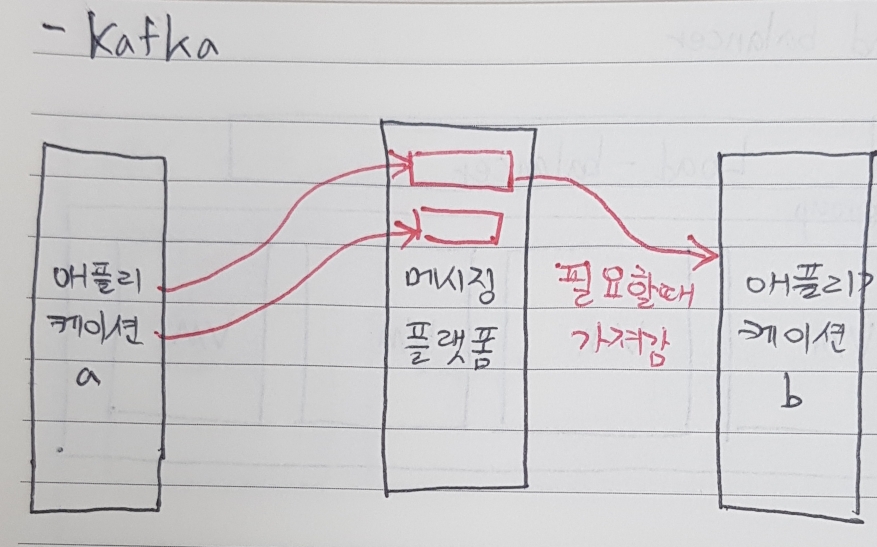 - Kafka
애플리
케이션
a
메시징
플랫폼
필요할때
가져감
애플리
케이션
b